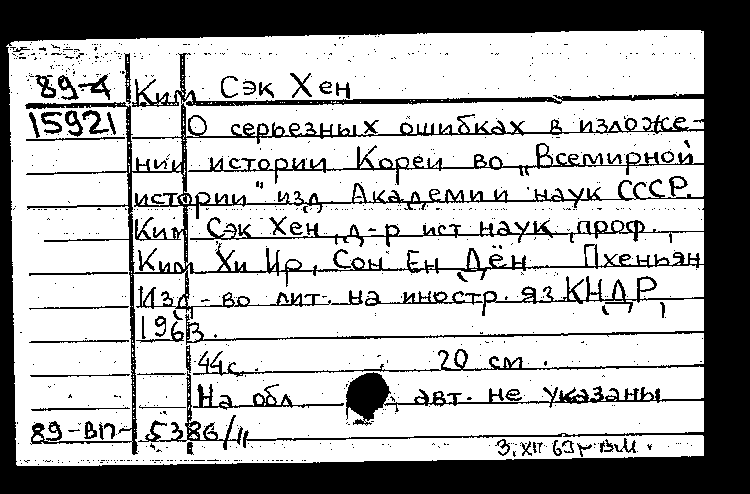 89-4 Ким Сэк Хен
15921 О серьезных ошибках в изложе-
нии истории Кореи во „Всемирной
истории" изд Академии наук СССР.
Ким Сэк Хен, д-р ист наук, проф.,
Ким Хи Ир, Сон Ен Дён Пхеньян
Изд-во лит. на иностр. яз КНДР,
1963.
44с. 20 см.
На обл авт. не указаны
89-ВП- 5386/
3.XII 69г